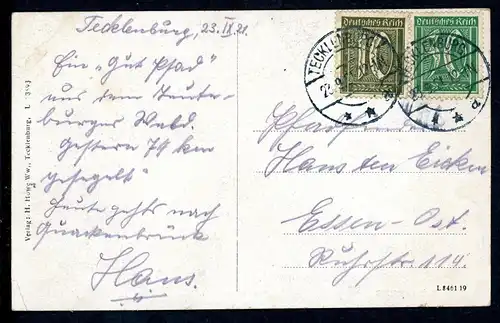 Tecklenburg, 23. IX. 21.
Ein "Gut Pfad"
aus dem Teuto-
burger Wald.
Gestern 74 km
gesegelt
Heute gehts nach
Quackenbrück
Hans
Verlag: H. Howe Ww., Tecklenburg.
Deutsches Reich
Deutsches Reich
TECKLENBURG
TECKLENBURG
Pfadfinder
Hans ten Eicken
Essen-Ost.
Ruhrstr. 114.
L 8461 19